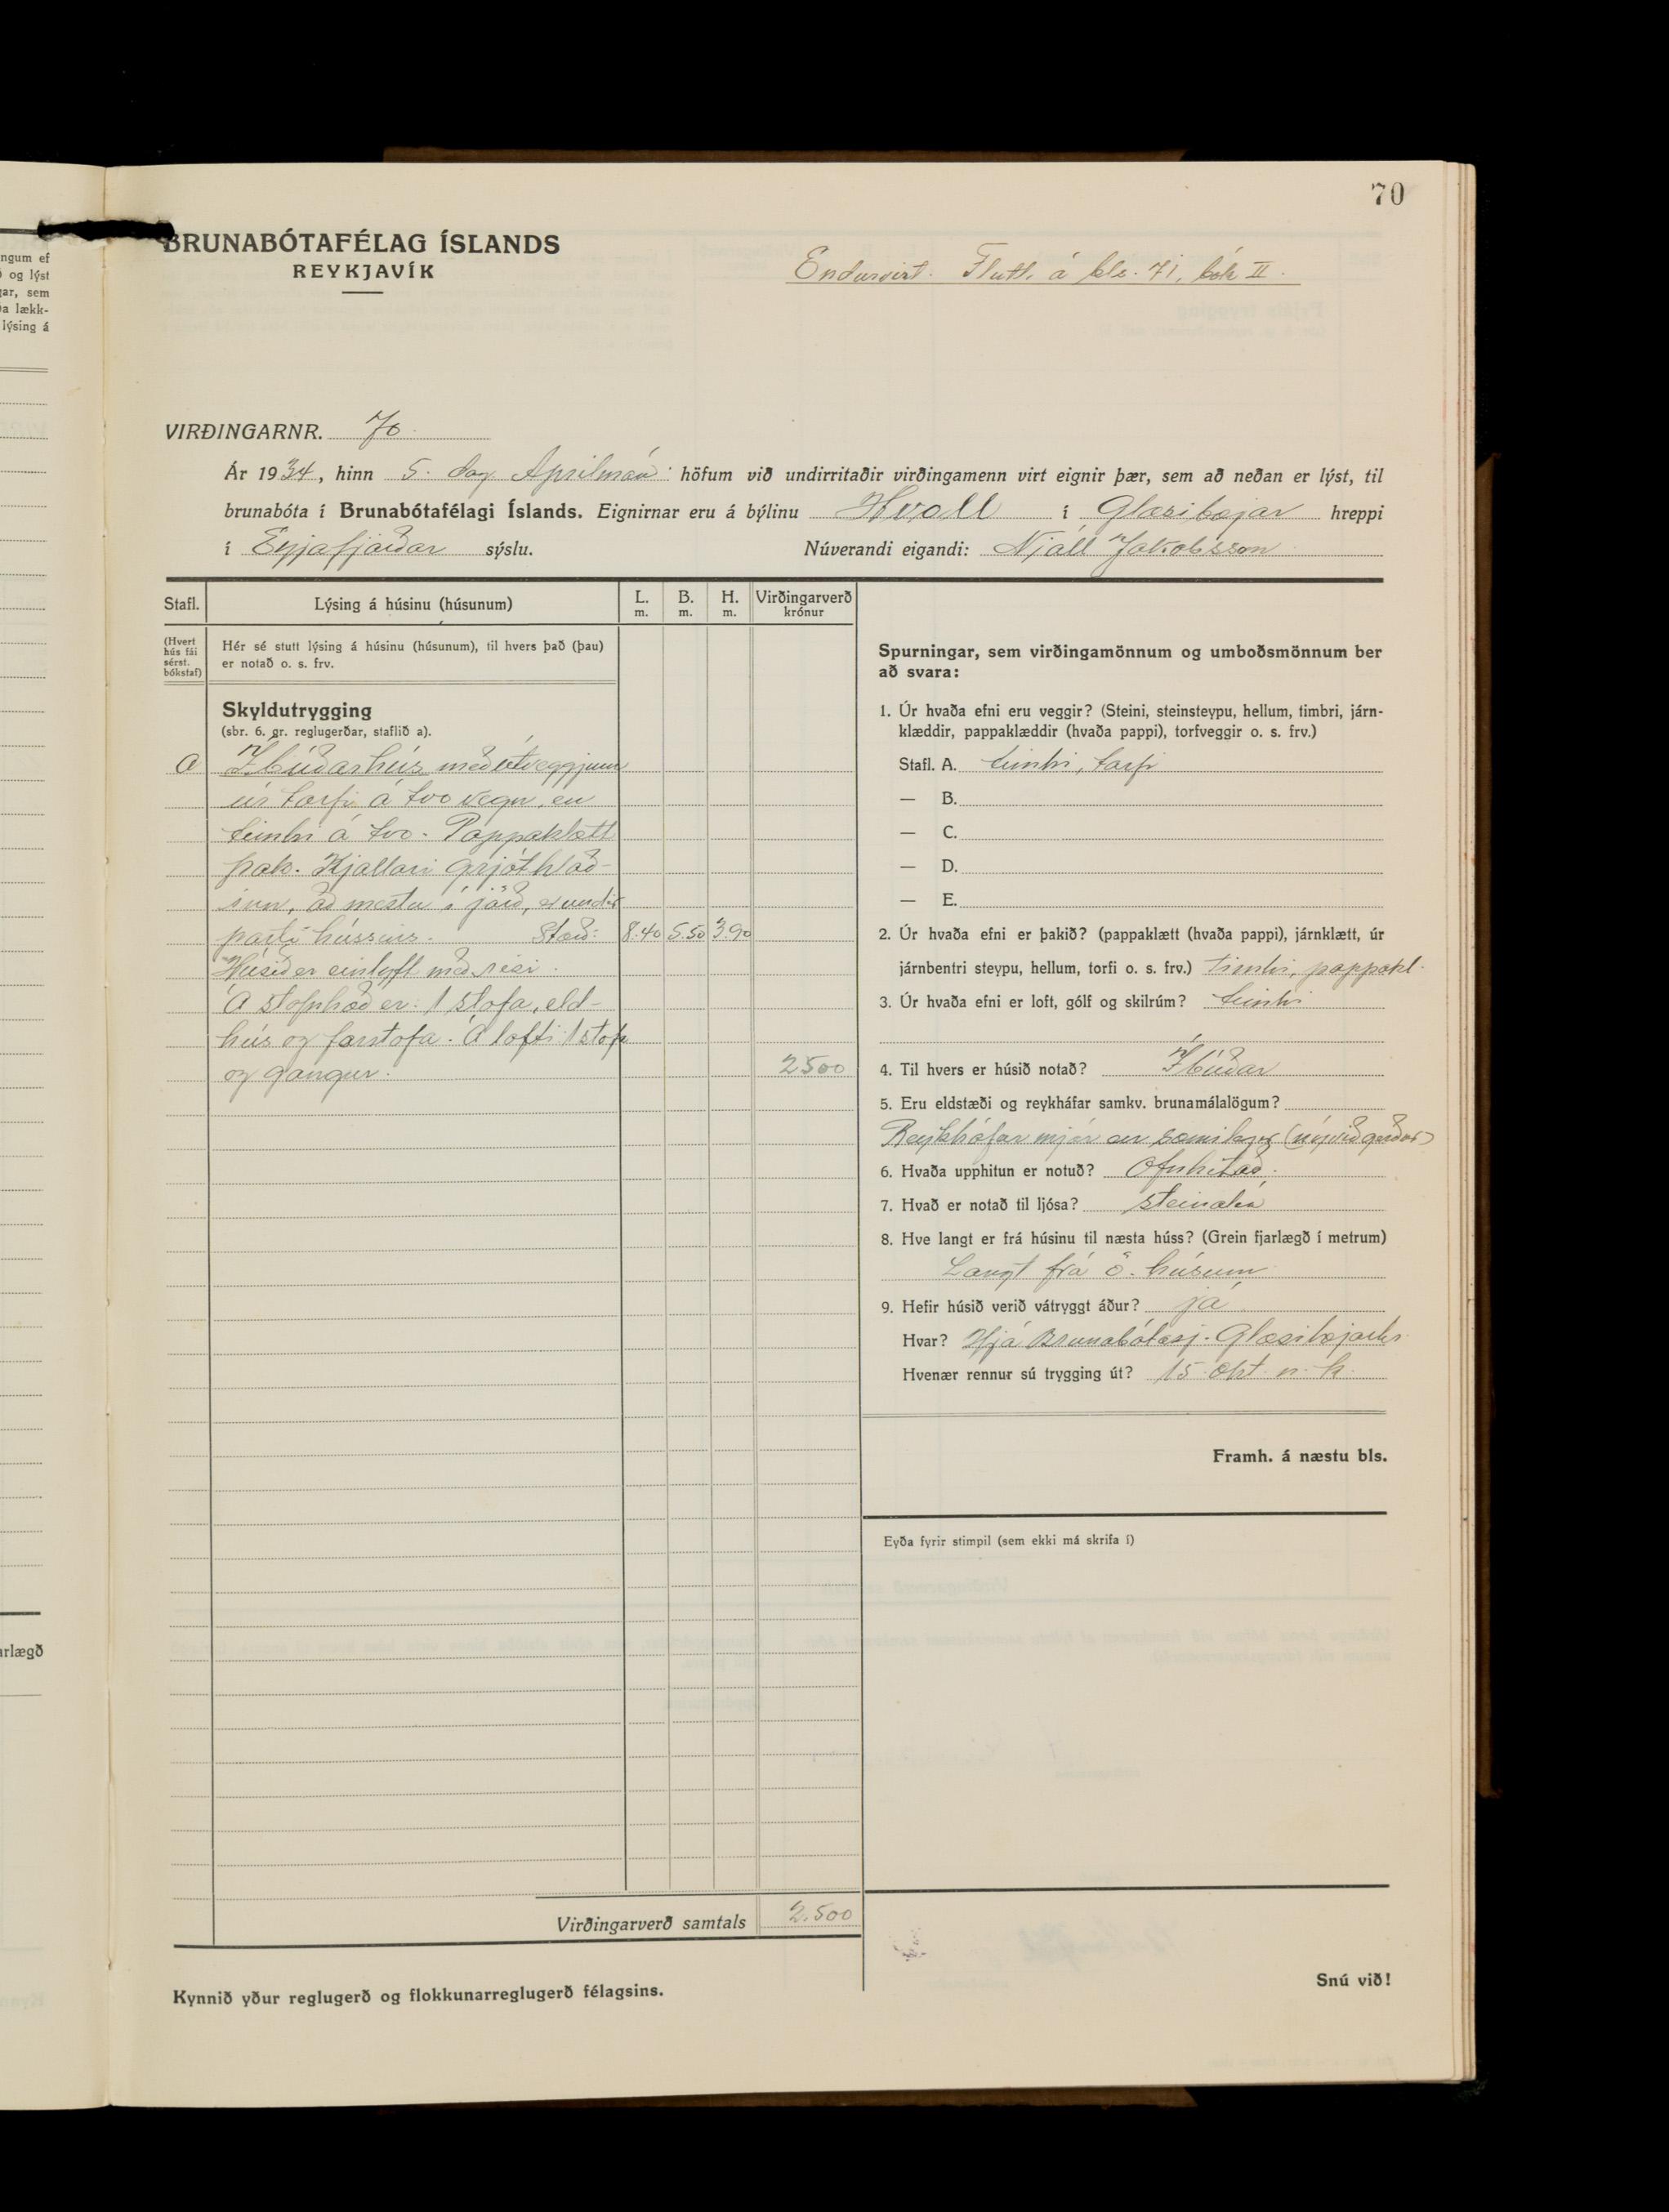 70
BRUNABÓTAFÉLAG ÍSLANDS
REYKJAVÍK
Endurvirt. Flutt á bls. 71, bók II.
VIRÐINGARNR. 70
Ár 1934, hinn 5. dag Aprílmán. höfum við undirritaðir virðingamenn virt eignir þær, sem að neðan er lýst, til
brunabóta í Brunabótafélagi Íslands. Eignirnar eru á býlinu Hvoll í Glæsibæjar hreppi
í Eyjafjarðar sýslu. Núverandi eigandi: Njáll Jakobsson
Stafl. Lýsing á húsinu (húsunum) L. m. B. m. H. m. Virðingarverð krónur
(Hvert hús fái sérst. bókstaf)
Hér sé stutt lýsing á húsinu (húsunum), til hvers það (þau)
er notað o. s. frv.
Skyldutrygging
(sbr. 6. gr. reglugerðar, staflið a).
a Íbúðarhús með útveggjum
úr torfi á tvo vegu, en
timbri á tvo. Pappaklætt
þak. Kjallari grjóthlað-
inn, að mestu í jörð, er undir
parti hússins. Stærð: 8.40 5.50 3.90
Húsið er einlyft með risi.
Á stofuhæð er: 1 stofa, eld-
hús og forstofa. Á lofti 1 stofa
og gangur. 2500
Virðingarverð samtals 2.500
Kynnið yður reglugerð og flokkunarreglugerð félagsins.
Spurningar, sem virðingamönnum og umboðsmönnum ber
að svara:
1. Úr hvaða efni eru veggir? (Steini, steinsteypu, hellum, timbri, járn-
klæddir, pappaklæddir (hvaða pappi), torfveggir o. s. frv.)
Stafl. A. timbri, torfi
— B.
— C.
— D.
— E.
2. Úr hvaða efni er þakið? (pappaklætt (hvaða pappi), járnklætt, úr
járnbentri steypu, hellum, torfi o. s. frv.) timbri, pappakl.
3. Úr hvaða efni er loft, gólf og skilrúm? timbri
4. Til hvers er húsið notað? Íbúðar
5. Eru eldstæði og reykháfar samkv. brunamálalögum?
Reykháfur mjór en sæmilegur (nýviðgerður)
6. Hvaða upphitun er notuð? Ofnhitað.
7. Hvað er notað til ljósa? steinolía
8. Hve langt er frá húsinu til næsta húss? (Grein fjarlægð í metrum)
Langt frá ö. húsum
9. Hefir húsið verið vátryggt áður? já
Hvar? Hjá Brunabótasj. Glæsibæjarhr.
Hvenær rennur sú trygging út? 15. okt. n. k.
Framh. á næstu bls.
Eyða fyrir stimpil (sem ekki má skrifa í)
Snú við!
ngum ef
og lýst
gar, sem
a lækk-
lýsing á
arlægð